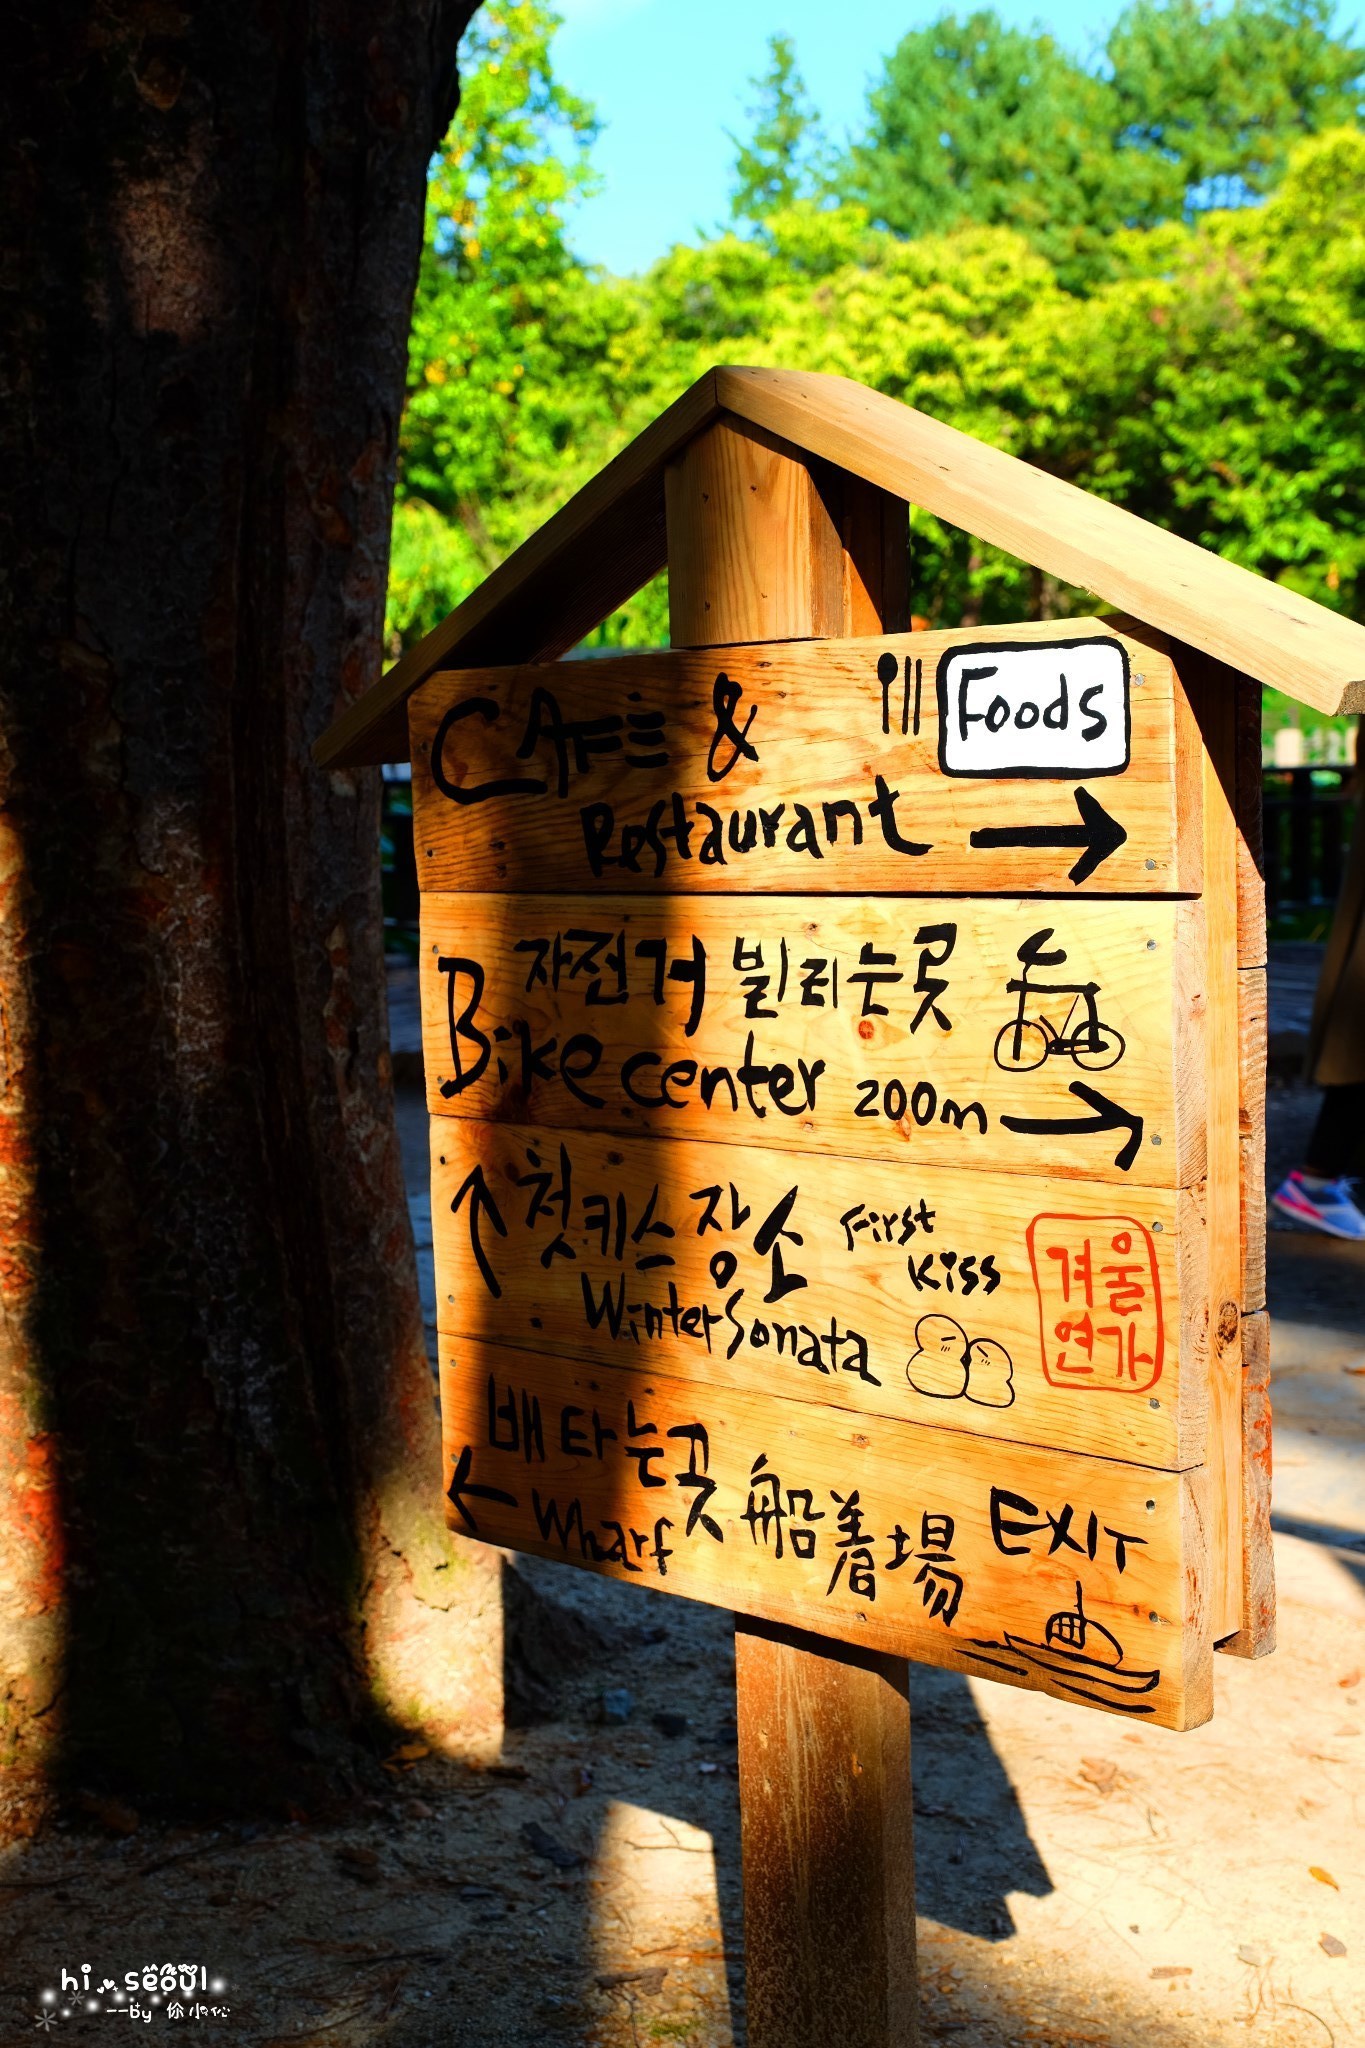 CAFE &
Foods
Restaurant
자전거 빌리는곳
Bike center 200m
첫키스 장소
First
Kiss
Winter Sonata
겨울
연가
배 타는곳
Wharf
船着場
EXIT
hi seoul
--by